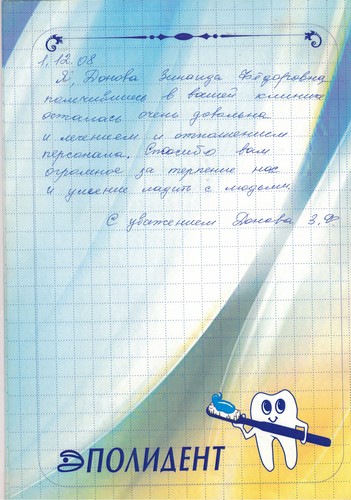 1.12.08
Я, Донова Зинаида Фёдоровна
полечившись в вашей клинике
осталась очень довольна
и лечением и отношением
персонала. Спасибо вам
огромное за терпение
и умение ладить с людьми.
С уважением Донова З.Ф
ЭПОЛИДЕНТ